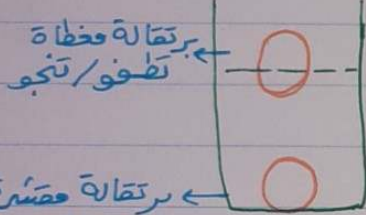 برتقالة مغطاة
تطفو/تنجو
برتقالة مقشرة